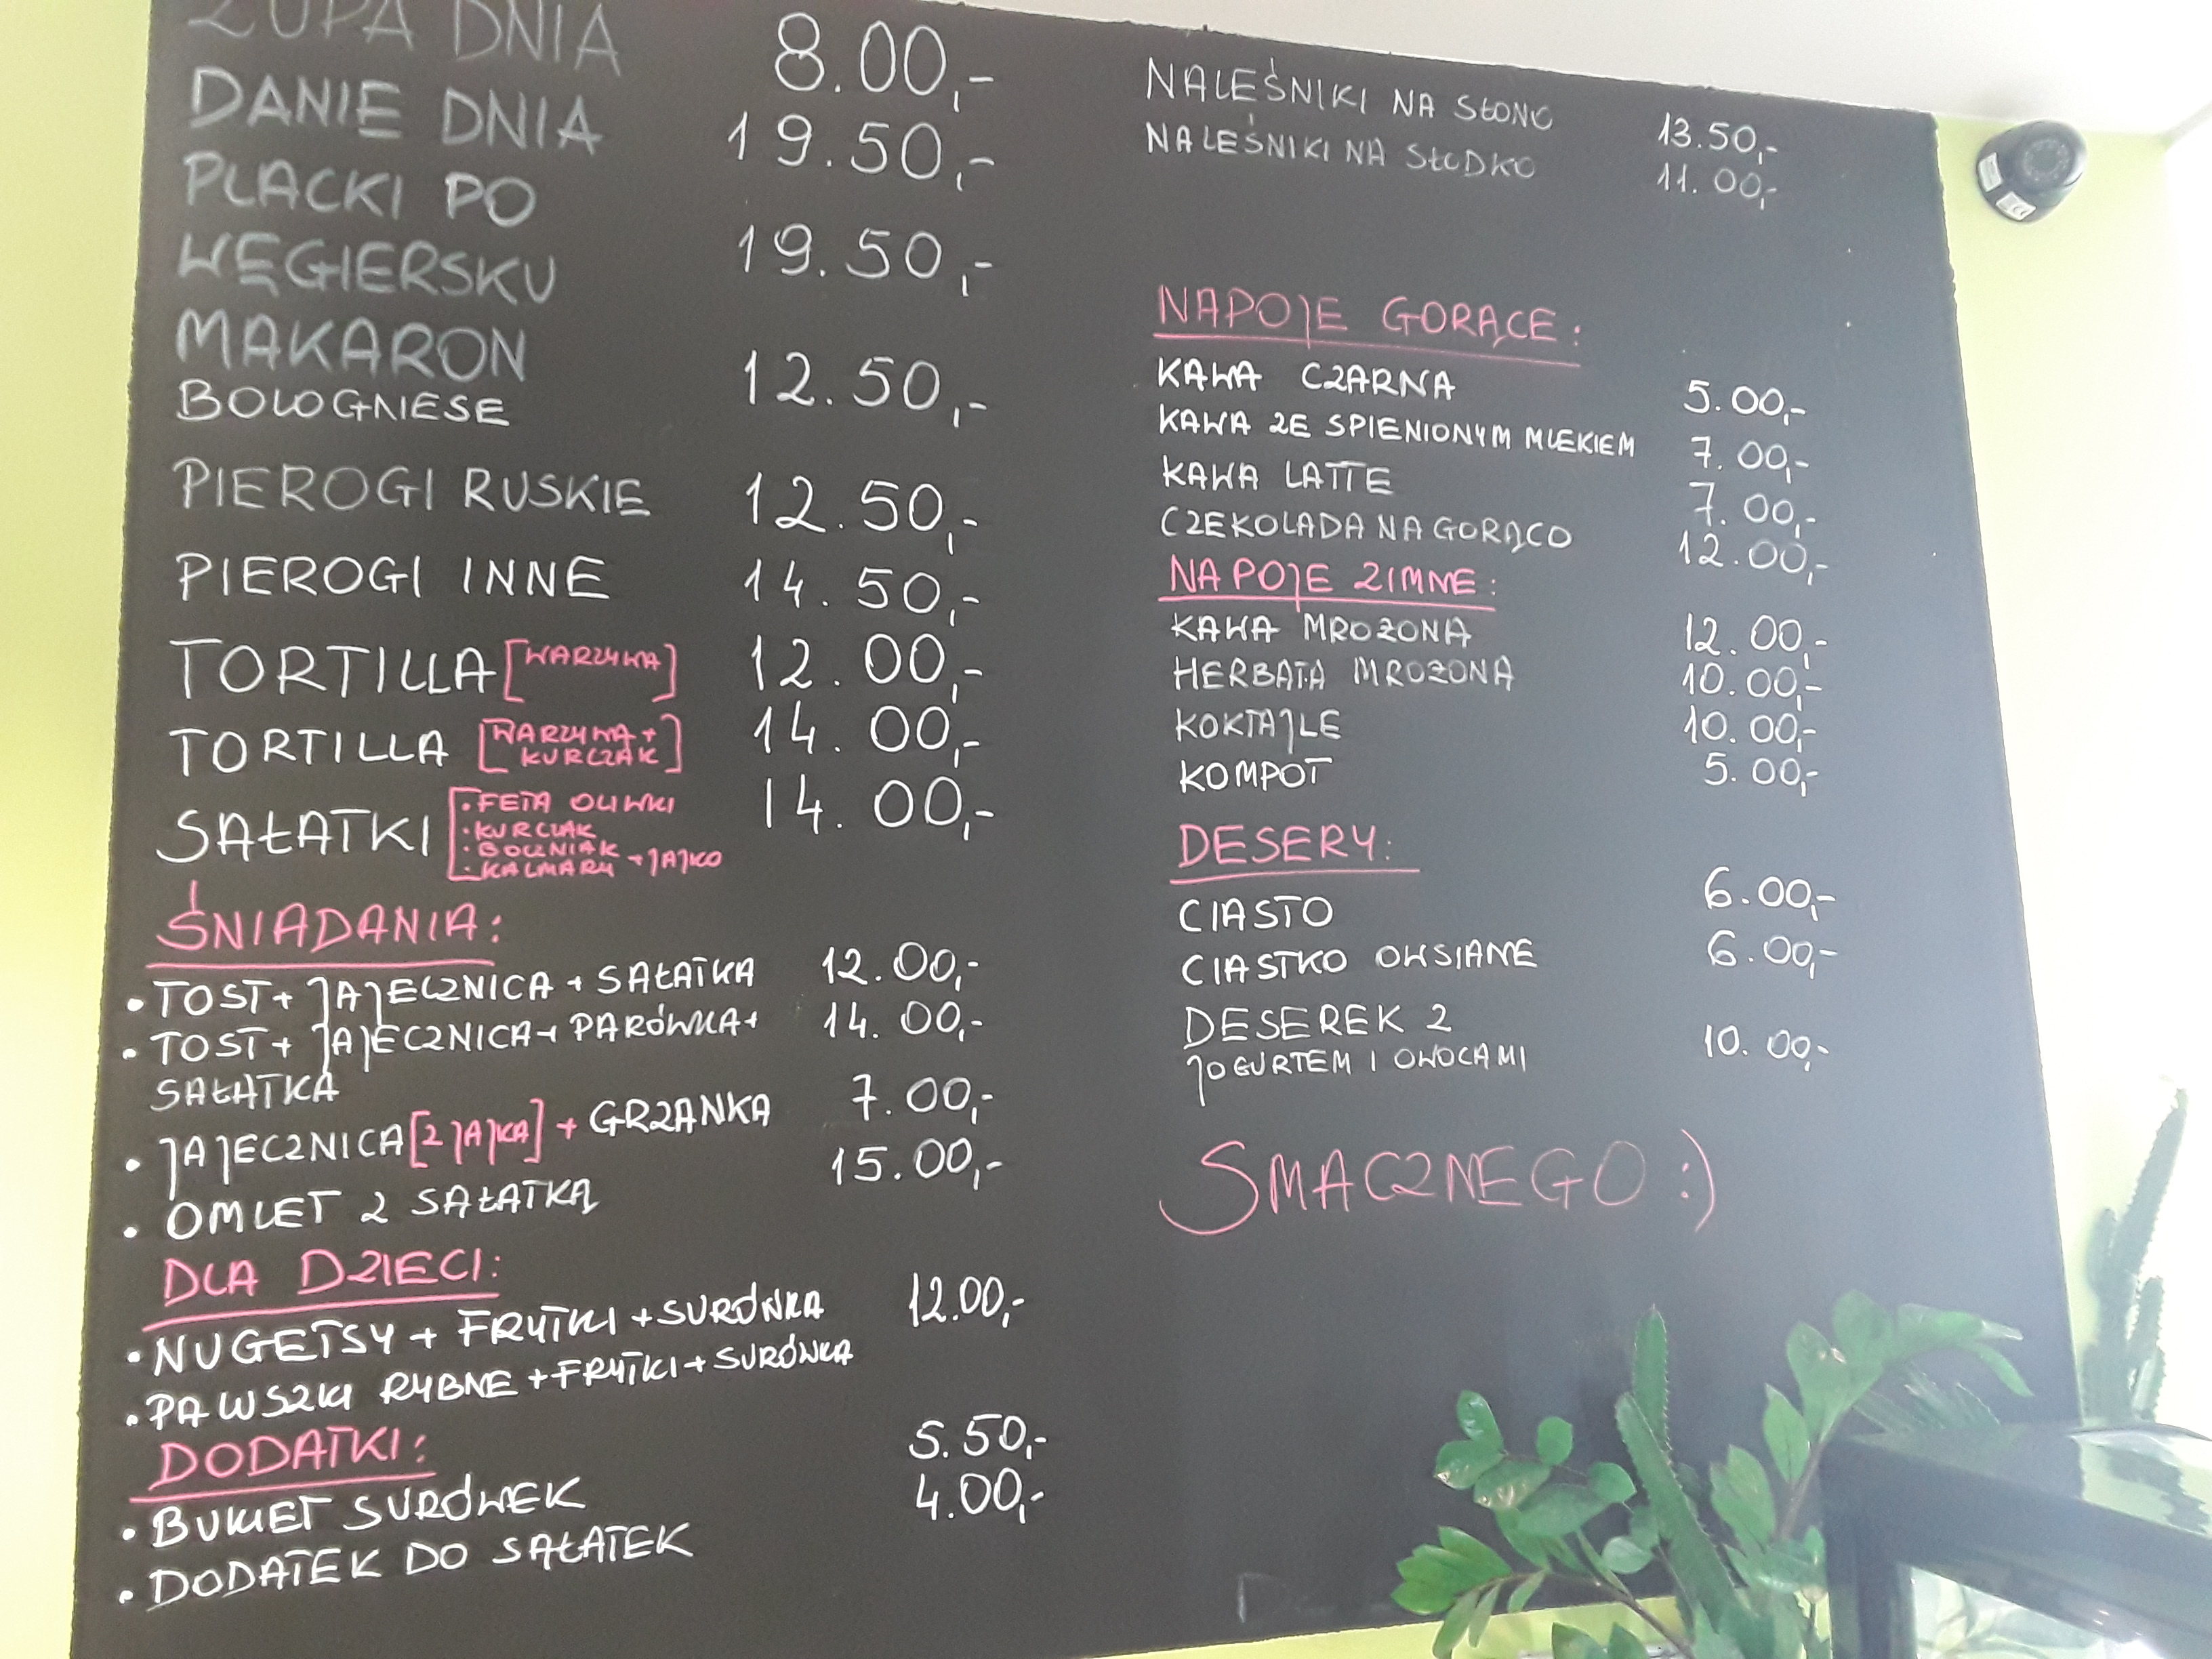 ZUPA DNIA 8.00,-
DANIE DNIA 19.50,-
PLACKI PO
WĘGIERSKU 19.50,-
MAKARON
BOLOGNIESE 12.50,-
PIEROGI RUSKIE 12.50,-
PIEROGI INNE 14.50,-
TORTILLA [WARZYWA] 12.00,-
TORTILLA [WARZYWA + KURCZAK] 14.00,-
SAŁATKI 14.00,-
• FETA OLIWKI
• KURCZAK
• BOCZNIAK
• KALMARY + JAJKO
ŚNIADANIA:
• TOST + JAJECZNICA + SAŁATKA 12.00,-
• TOST + JAJECZNICA + PARÓWKA + 14.00,-
SAŁATKA
• JAJECZNICA [2 JAJKA] + GRZANKA 7.00,-
• OMLET Z SAŁATKĄ 15.00,-
DLA DZIECI:
• NUGETSY + FRYTKI + SURÓWKA 12.00,-
• PAWSZKI RYBNE + FRYTKI + SURÓWKA
DODATKI:
• BUKIET SURÓWEK 5.50,-
• DODATEK DO SAŁATEK 4.00,-
NALEŚNIKI NA SŁONO 13.50,-
NALEŚNIKI NA SŁODKO 11.00,-
NAPOJE GORĄCE:
KAWA CZARNA 5.00,-
KAWA ZE SPIENIONYM MLEKIEM 7.00,-
KAWA LATTE 7.00,-
CZEKOLADA NA GORĄCO 12.00,-
NAPOJE ZIMNE:
KAWA MROZONA 12.00,-
HERBATA MROZONA 10.00,-
KOKTAJLE 10.00,-
KOMPOT 5.00,-
DESERY:
CIASTO 6.00,-
CIASTKO OWSIANE 6.00,-
DESEREK Z
JOGURTEM I OWOCAMI 10.00,-
SMACZNEGO :)